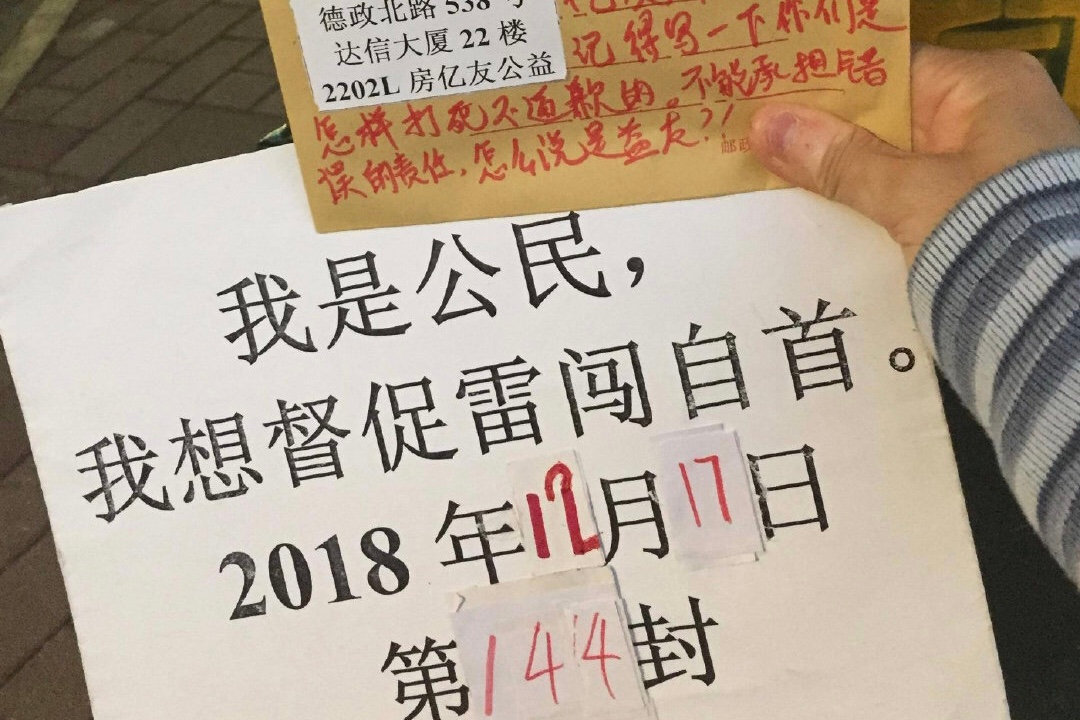 德政北路 538 号
达信大厦 22 楼
2202L 房亿友公益
记得写一下你们是
怎样打死不道歉的。不能承担错
误的责任，怎么说是益友？！
邮政
我是公民，
我想督促雷闯自首。
2018 年12月17日
第144封